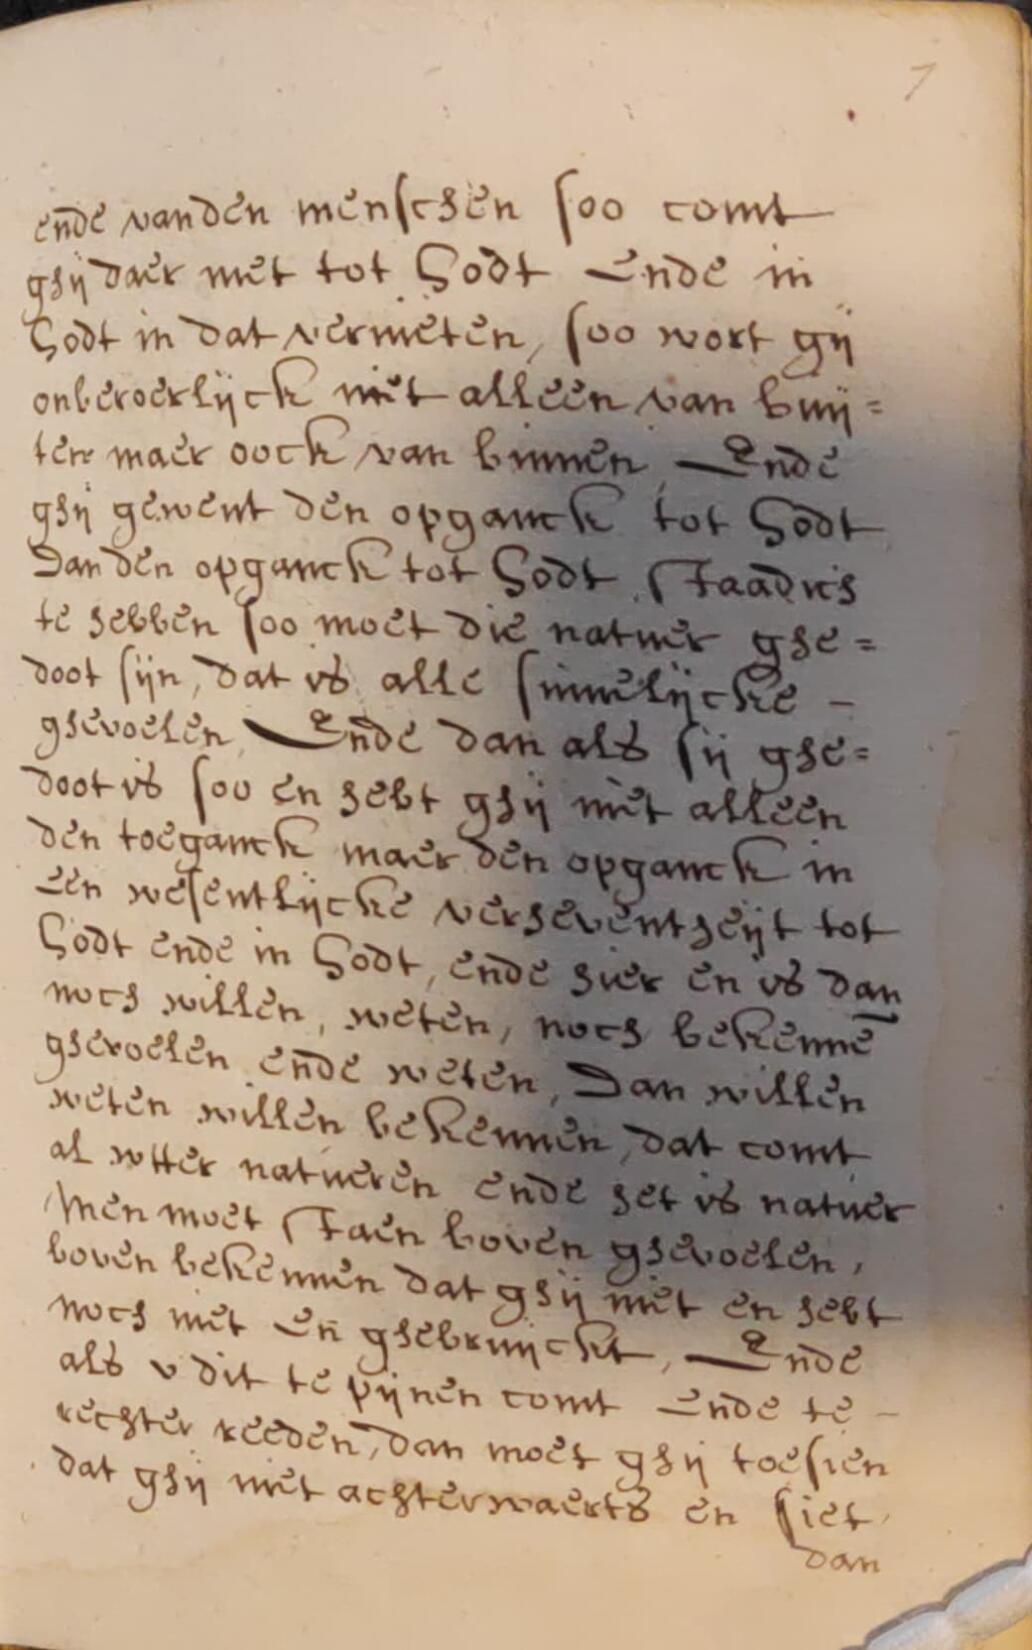 7
ende vanden menschen soo comt
ghij daer met tot Godt Ende in
Godt in dat vernieten, soo wort gij
onberoerlijck niet alleen van buij=
ten maer oock van binnen, Ende
ghij gewent den opganck tot Godt
Dan den opganck tot Godt, staadich
te hebben soo moet die natuer ghe=
doot sijn, dat is alle sinnelijcke -
ghevoelen, Ende dan als sij ghe=
doot is soo en hebt ghij niet alleen
den toeganck maer den opganck in
Een wesentlijcke verheventheijt tot
Godt ende in Godt, ende hier en is dan
noch willen, weten, noch bekenne̅
ghevoelen ende weten, Dan willen
weten willen bekennen, dat comt
al wtter natueren ende het is natuer
Men moet staen boven ghevoelen,
boven bekennen dat ghij niet en hebt
noch niet en ghebruijckt, Ende
als v dit te pijnen comt Ende te -
rechter reeden, dan moet ghij toesien
dat ghij niet achterwaerts en siet
dan